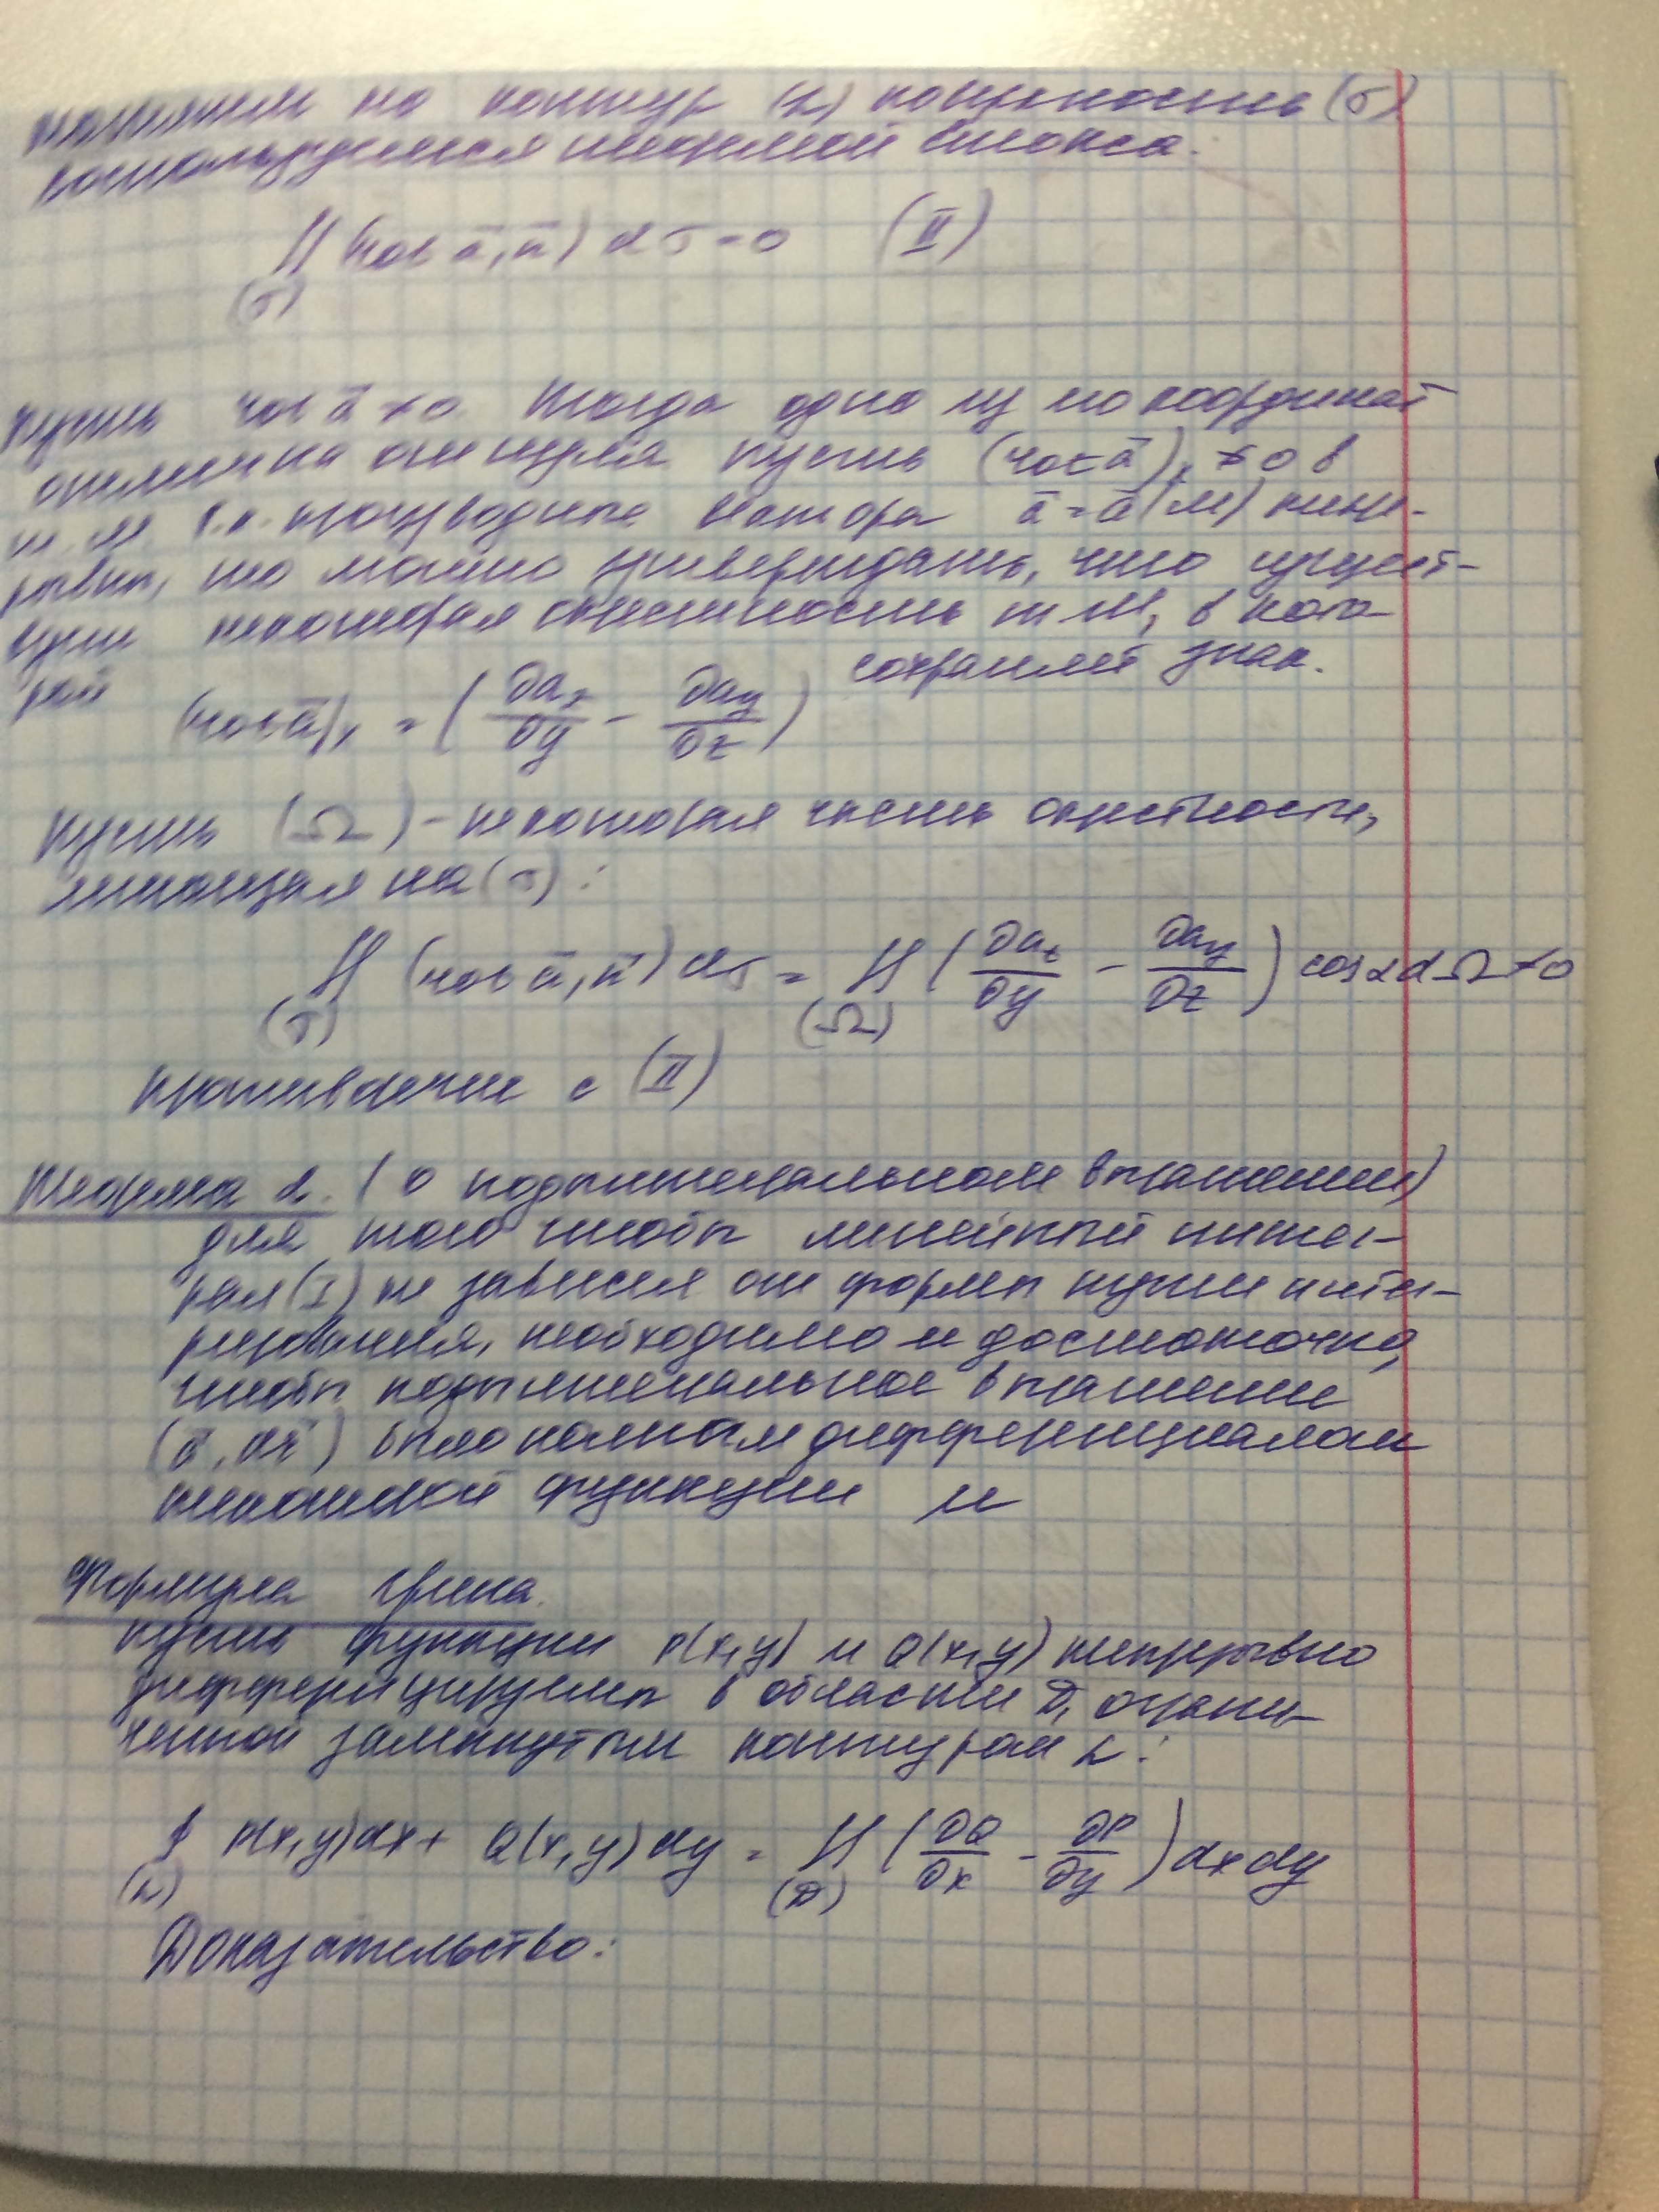 натянем на контур (L) поверхность (σ)
воспользуемся теоремой Стокса:
∬ (rot a̅, n̅) dσ = 0 (II)
(σ)
Пусть rot a̅ ≠ 0. Тогда одна из его координат
отлична от нуля пусть (rot a̅)ₓ ≠ 0 в
т. М. т.к. производные вектора a̅ = a̅(М) непре-
рывны, то можно утверждать, что сущест-
вует некоторая окрестность т М, в кото
рой (rot a̅)ₓ = (∂a_z/∂y − ∂a_y/∂z) сохраняет знак.
Пусть (Ω) - некоторая часть окрестности,
лежащая на (σ):
∬ (rot a̅, n̅) dσ = ∬ (∂a_z/∂y − ∂a_y/∂z) cos α dΩ ≠ 0
(σ) (Ω)
противоречие с (II)
Теорема 2. (о подынтегральном выражении)
для того чтобы линейный интег-
рал (I) не зависел от формы пути интег-
рирования, необходимо и достаточно,
чтобы подынтегральное выражение
(a̅, dr̅) было полным дифференциалом
некоторой функции u
Формула Грина.
Пусть функции P(x,y) и Q(x,y) непрерывно
дифференцируемы в области D, ограни-
ченной замкнутым контуром L:
∮ P(x,y)dx + Q(x,y)dy = ∬ (∂Q/∂x − ∂P/∂y) dx dy
(L) (D)
Доказательство: